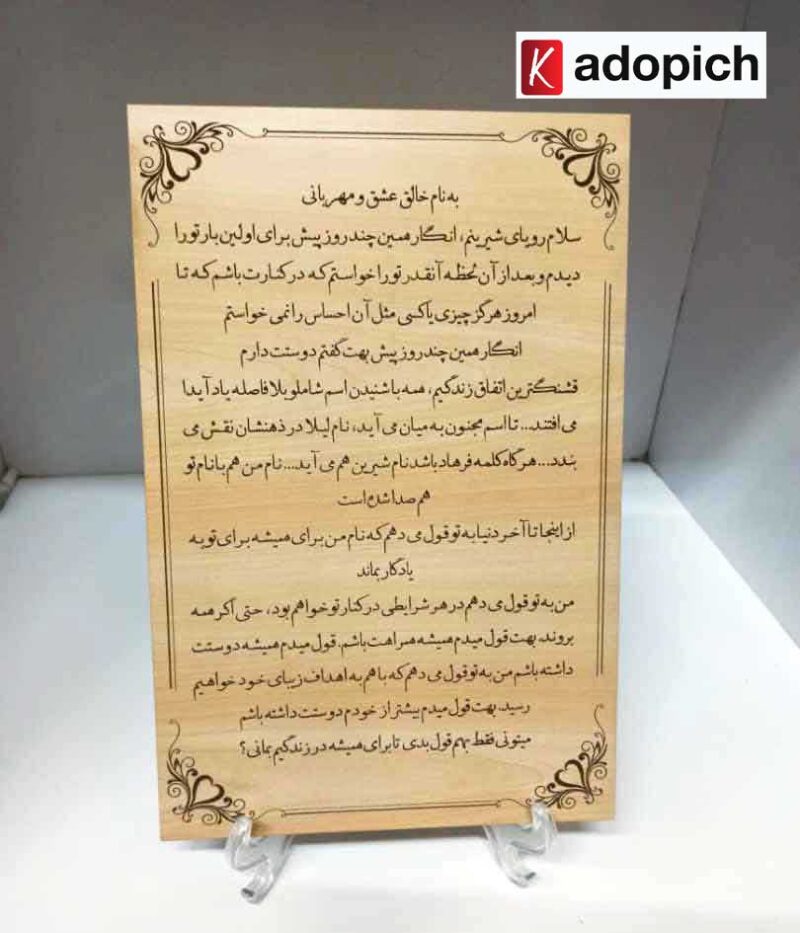 Kadopich
به نام خالق عشق و مهربانی
سلام رویای شیرینم، انگار همین چند روز پیش برای اولین بار تو را
دیدم و بعد از آن لحظه آنقدر تو را خواستم که در کنارت باشم که تا
امروز هرگز چیزی یا کسی مثل آن احساس را نمی خواستم
انگار همین چند روز پیش بهت گفتم دوستت دارم
قشنگترین اتفاق زندگیم، همه با شنیدن اسم شاملو بلافاصله یاد آیدا
می افتند... تا اسم مجنون به میان می آید، نام لیلا در ذهنشان نقش می
بندد... هر گاه کلمه فرهاد باشد نام شیرین هم می آید... نام من هم با نام تو
هم صدا شده است
از اینجا تا آخر دنیا به تو قول می دهم که نام من برای همیشه برای تو به
یادگار بماند
من به تو قول می دهم در هر شرایطی در کنار تو خواهم بود، حتی اگر همه
بروند. بهت قول میدم همیشه همراهت باشم. قول میدم همیشه دوستت
داشته باشم من به تو قول می دهم که با هم به اهداف زیبای خود خواهیم
رسید. بهت قول میدم بیشتر از خودم دوستت داشته باشم
میتونی فقط بهم قول بدی تا برای همیشه در زندگیم بمانی؟